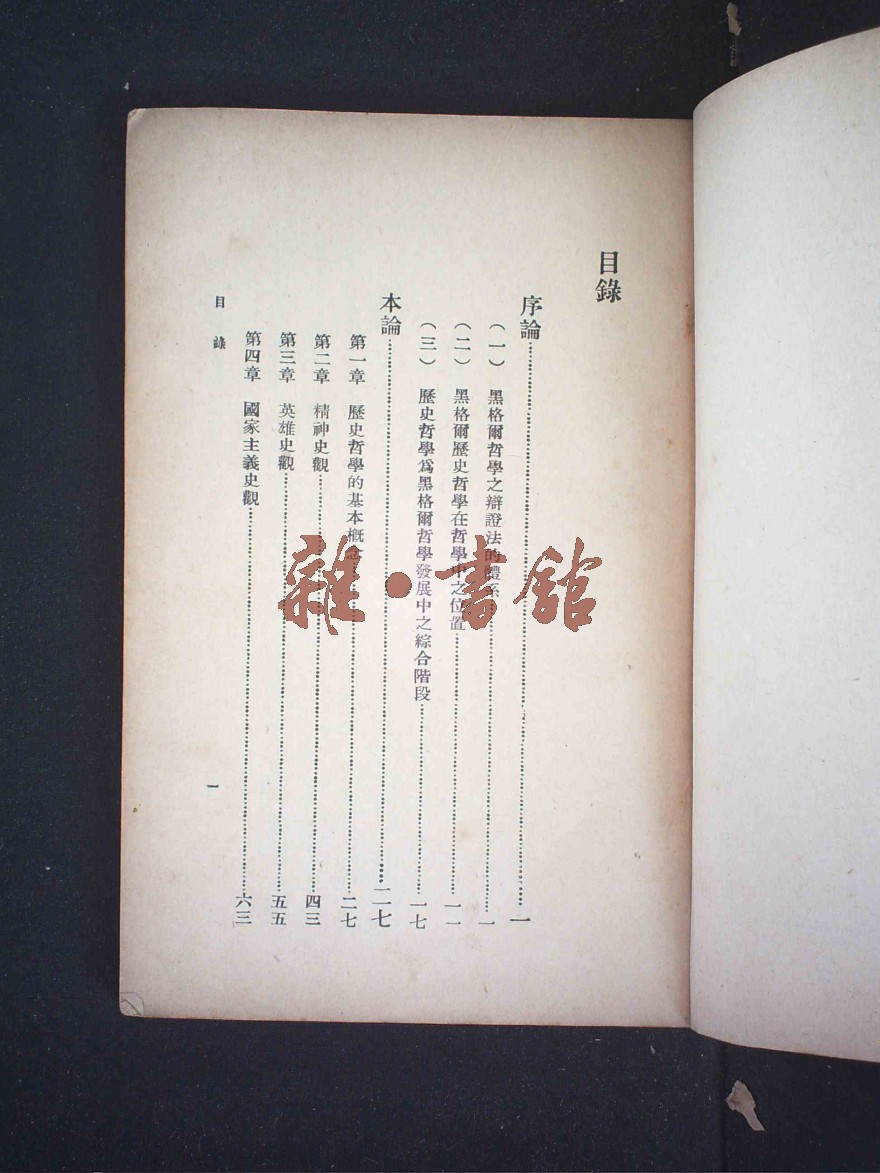 目錄
序論……一
(一) 黑格爾哲學之辯證法的體系……一
(二) 黑格爾歷史哲學在哲學中之位置……一一
(三) 歷史哲學爲黑格爾哲學發展中之綜合階段……一七
本論……二七
第一章 歷史哲學的基本概念……二七
第二章 精神史觀……四三
第三章 英雄史觀……五五
第四章 國家主義史觀……六三
目錄
一
雜·書館